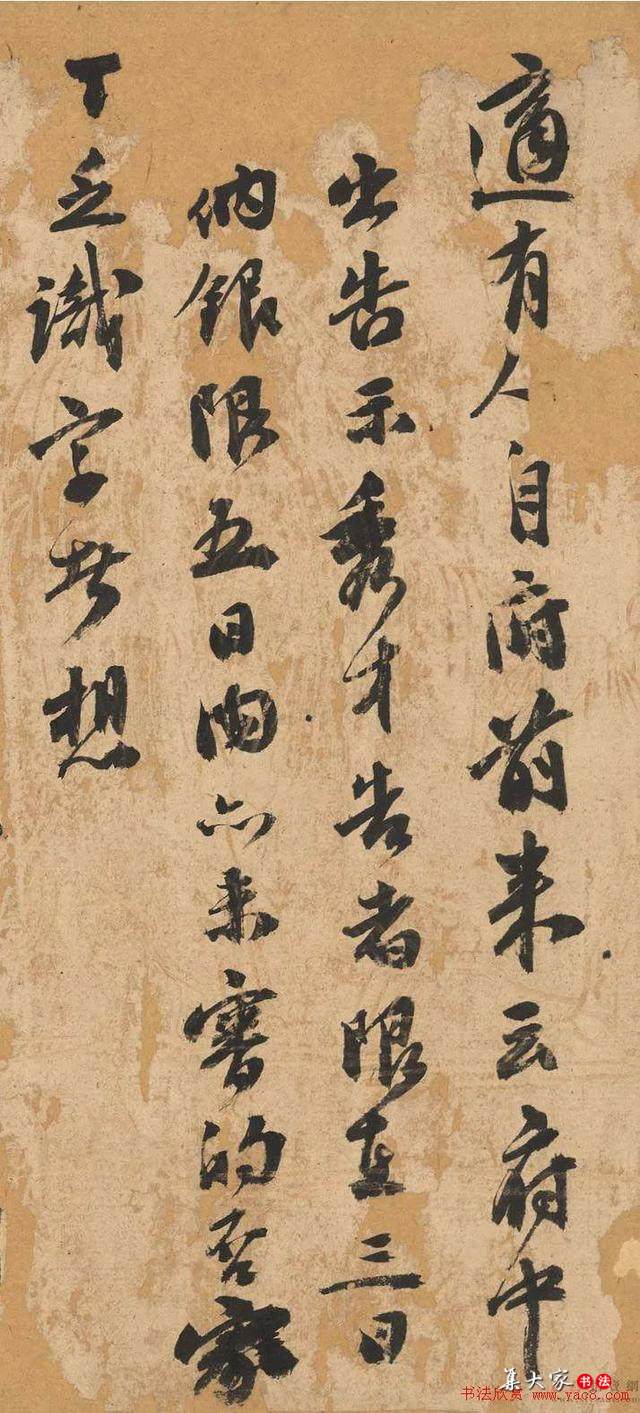 適有人自府前来云府中
出告示秀才告者限在三日
納银限五日内亦未審的否家
丁乏識字者想
集大家书法
书法欣赏 www.yac8.com